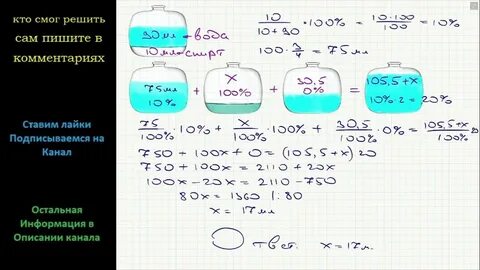 кто смог решить
сам пишите в
комментариях
Ставим лайки
Подписываемся на
Канал
Остальная
Информация в
Описании канала
30 мл - вода
10 мл спирт
10/(10+30) · 100% = (10·100)/100 = 10%
100 · 3/4 = 75 мл
75 мл 10% + x 100% + 30,5 0% = 105,5+x 10%·2 = 20%
75/100% · 10% + x/100% · 100% + 30,5/100% · 0% = (105,5+x)/100% 20
750 + 100x + 0 = (105,5+x) 20
750 + 100x = 2110 + 20x
100x - 20x = 2110 - 750
80x = 1360 |:80
x = 17 мл
Ответ. x = 17 м.